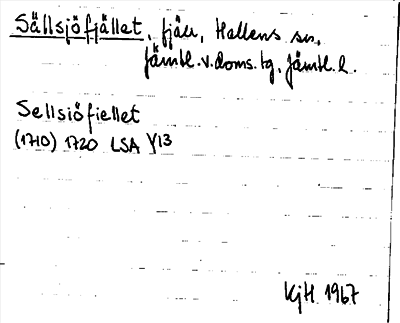 Sällsjöfjället, fjäll, Hallens sn,
Jämtl. v. doms. tg, Jämtl. l.
Sellsiöfiellet
(1710) 1720 LSA Y13
KjH 1967